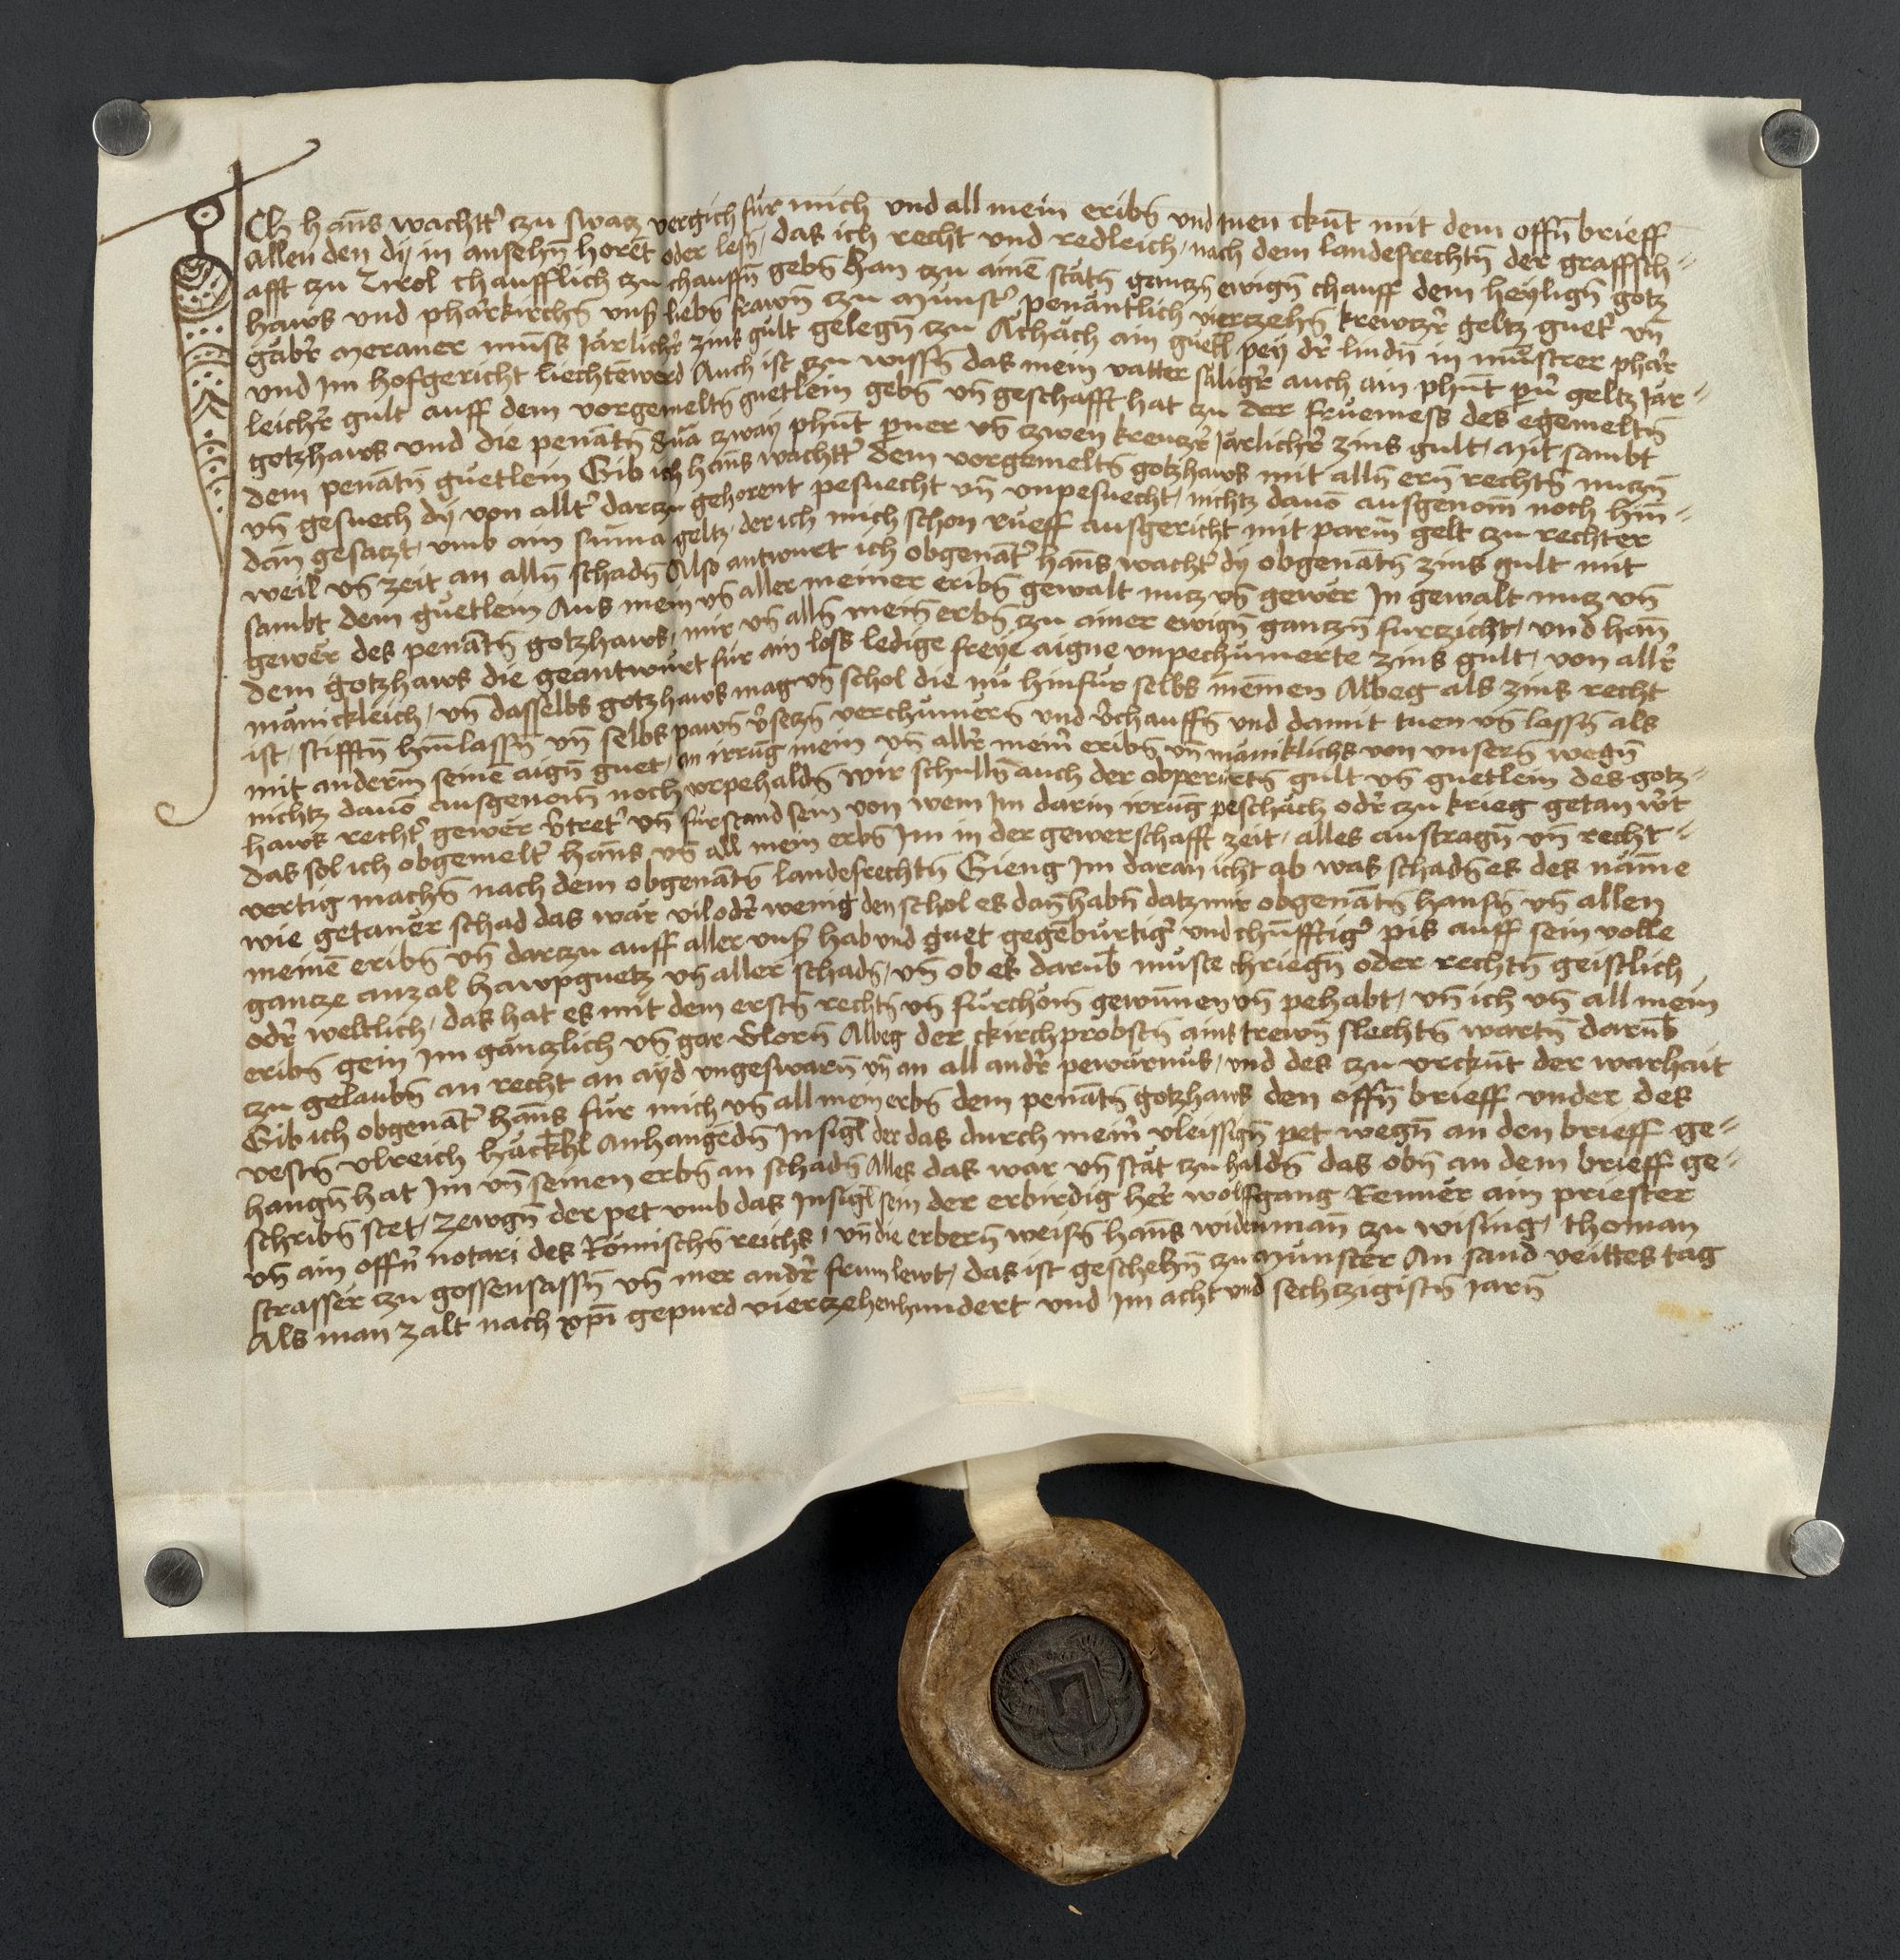 Ich hanns wachtr̄ czu swacz vergich fur mich und all mein eribn̄ und tuen ckūt mit dem offn̄ brieff
allen den dy in ansehn̄ horēt oder lesn̄ / das ich recht und redleich / nach dem landesrechtn̄ der graffsch=
afft zu Tirol chaufflich zu chauffn̄ gebn̄ han zu ainē stätn̄ ganczn̄ ewign̄ chauff dem heylign̄ gotz
haws und pharkirchn̄ unsr̄ liebn̄ frawn̄ zu Munstr̄ penäntlich vierzehn̄ krewczr̄ geltz guetr̄ vn̄
gäbr̄ Meraner müns Järlichr̄ zins gult gelegn̄ zu Achäch ain guetl pey dr̄ lindn̄ in munstrer pharr
und Im hofgericht liechtēwerd Auch ist zu wissn̄ das mein vatter säligr̄ auch ain phūt pr̄ geltz Jär=
leichr̄ gult auff dem vorgemeltn̄ guetlein gebn̄ vn̄ geschafft hat zu der fruemess des egemeltn̄
gotzhaws und die penātn̄ sūa zway phūt pner vn̄ zwen kreuczr̄ Järlichr̄ zins gult / Mit sambt
dem penātn̄ guetlein Gib ich hanns wachtr̄ dem vorgemeltn̄ gotzhaws mit alln̄ ern̄ rechtn̄ nuczn̄
vn̄ gesuech dy von alltr̄ darzu gehorent pesuecht vn̄ unpesuecht / nichtz dauō ausgenom̄ noch hin̄=
dan gesaczt / umb ain sūma geltz / der ich mich schon rueff ausgericht mit parm̄ gelt zu rechter
weil vn̄ zeit an alln̄ schadn̄ Also antwurt ich obgenātr̄ hanns wachtr̄ dy obgenātn̄ zins gult mit
sambt dem guetlein Aus mein vn̄ aller meiner eribn̄ gewalt nucz vn̄ gewer In gewalt nucz vn̄
gewer des penātn̄ gotzhaws / mir vn̄ alln̄ mein̄ erbn̄ zu ainer ewign̄ ganczn̄ furzicht / und han
dem gotzhaws die geantwurt für ain loss ledige freye aigne unpechumerte zins gult / von allr̄
mänickleich / vn̄ dasselbs gotzhaws mag vn̄ schol die nu hinfur selbs inemen Albeg als zins recht
ist / stifftn̄ hinlassn̄ vn̄ selbs pawn̄ vr̄seczn̄ verchumern̄ und vr̄chauffn̄ und damit tuen vn̄ lassn̄ als
mit anderm seinē aign̄ guet / an irrūg mein vn̄ allr̄ meinr̄ eribn̄ vn̄ mäniklichs von unsern̄ wegn̄
nichtz dauō ausgenom̄ noch vorpehaldn̄ wir schulln̄ auch der obperürtn̄ gult vn̄ guetlein des gotz=
haws rechtr̄ gewer vr̄tretr̄ vn̄ furstand sein von wem Im darin irrūg peschäch odr̄ zu krieg getan wr̄t
das sol ich obgemeltr̄ hanns vn̄ all mein erbn̄ Im in der gewerschafft zeit / alles austragn̄ vn̄ recht=
vertig machn̄ nach dem obgenātn̄ landesrechtn̄ Gieng Im daran icht ab was schadn̄ es des näme
wie getaner schad das wär vil odr̄ wenig den schol es dan habn̄ datz mir obgenātn̄ hansn̄ vn̄ allen
meinē eribn̄ vn̄ darzu auff aller unsr̄ hab und guet gegēburtigr̄ und chūfftigr̄ pis auff sein volle
gancze anzal hawpguetz vn̄ aller schadn̄ / vn̄ ob es darūb muste chriegn̄ oder rechtn̄ geistlich
odr̄ weltlich / das hat es mit dem erstn̄ rechtn̄ vn̄ furchom̄ gewunnen vn̄ pehabt / vn̄ ich vn̄ all mein
eribn̄ gein Im gänczlich vn̄ gar vr̄lorn̄ Albeg der ckirchprobstn̄ aint trewn̄ slechtn̄ wartn̄ darūb
zu gelaubn̄ an recht an ayd ungeswarn̄ vn̄ an all andr̄ pewärnus / und des zu urckūt der warhait
Gib ich obgenātr̄ hanns fur mich vn̄ all mein erbn̄ dem penātn̄ gotzhaws den offn̄ brieff under des
vestn̄ ulreich häckhl anhangēdn̄ Insigl der das durch meinr̄ vleissign̄ pet wegn̄ an den brieff ge=
hangn̄ hat Im vn̄ seinen erbn̄ an schadn̄ Alles das war vn̄ stät zu haldn̄ das obn̄ an dem brieff ge=
schribn̄ stet / zewgn̄ der pet umb das Insigl sein der erbirdig her wolfgang Renner ain priester
vn̄ ain offn̄ notari des Römischn̄ reichs / vn̄ die erbern̄ weisn̄ hanns widenman zu wising / thoman
strasser zu gossensassn̄ vn̄ mer andr̄ frum lewt / das ist geschehn̄ zu Munster An sand veittes tag
Als man zalt nach xp̄i gepurd vierzehenhundert und Im acht und sechtzigistn̄ Jarn̄